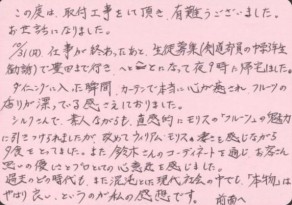 この度は、取付工事をして頂き、有難うございました。
お世話になりました。
7/31(火)、仕事が終わったあと、生徒募集(剣道部員の中学洋生
勧誘)で豊田まで行き、へとへとになって夜9時に帰宅しました。
ダイニングに入った瞬間、カーテンで本当に心が癒され、フルーツの
香りが漂っている感さえしておりました。
シルクさんで、素人ながらも、直感的にモリスの「フルーツ」の魅力
に引きつけられましたが、改めてウィリアム・モリスの凄さを感じながら
夕食をとってました。また、鈴木さんのコーディネートを通じ、お客さん
思いの優しさとプロとしての心意気を感じました。
過去のどの時代も、また混沌とした現代社会の中でも、「本物」は
やはり良い、というのが私の感想です。 前面へ